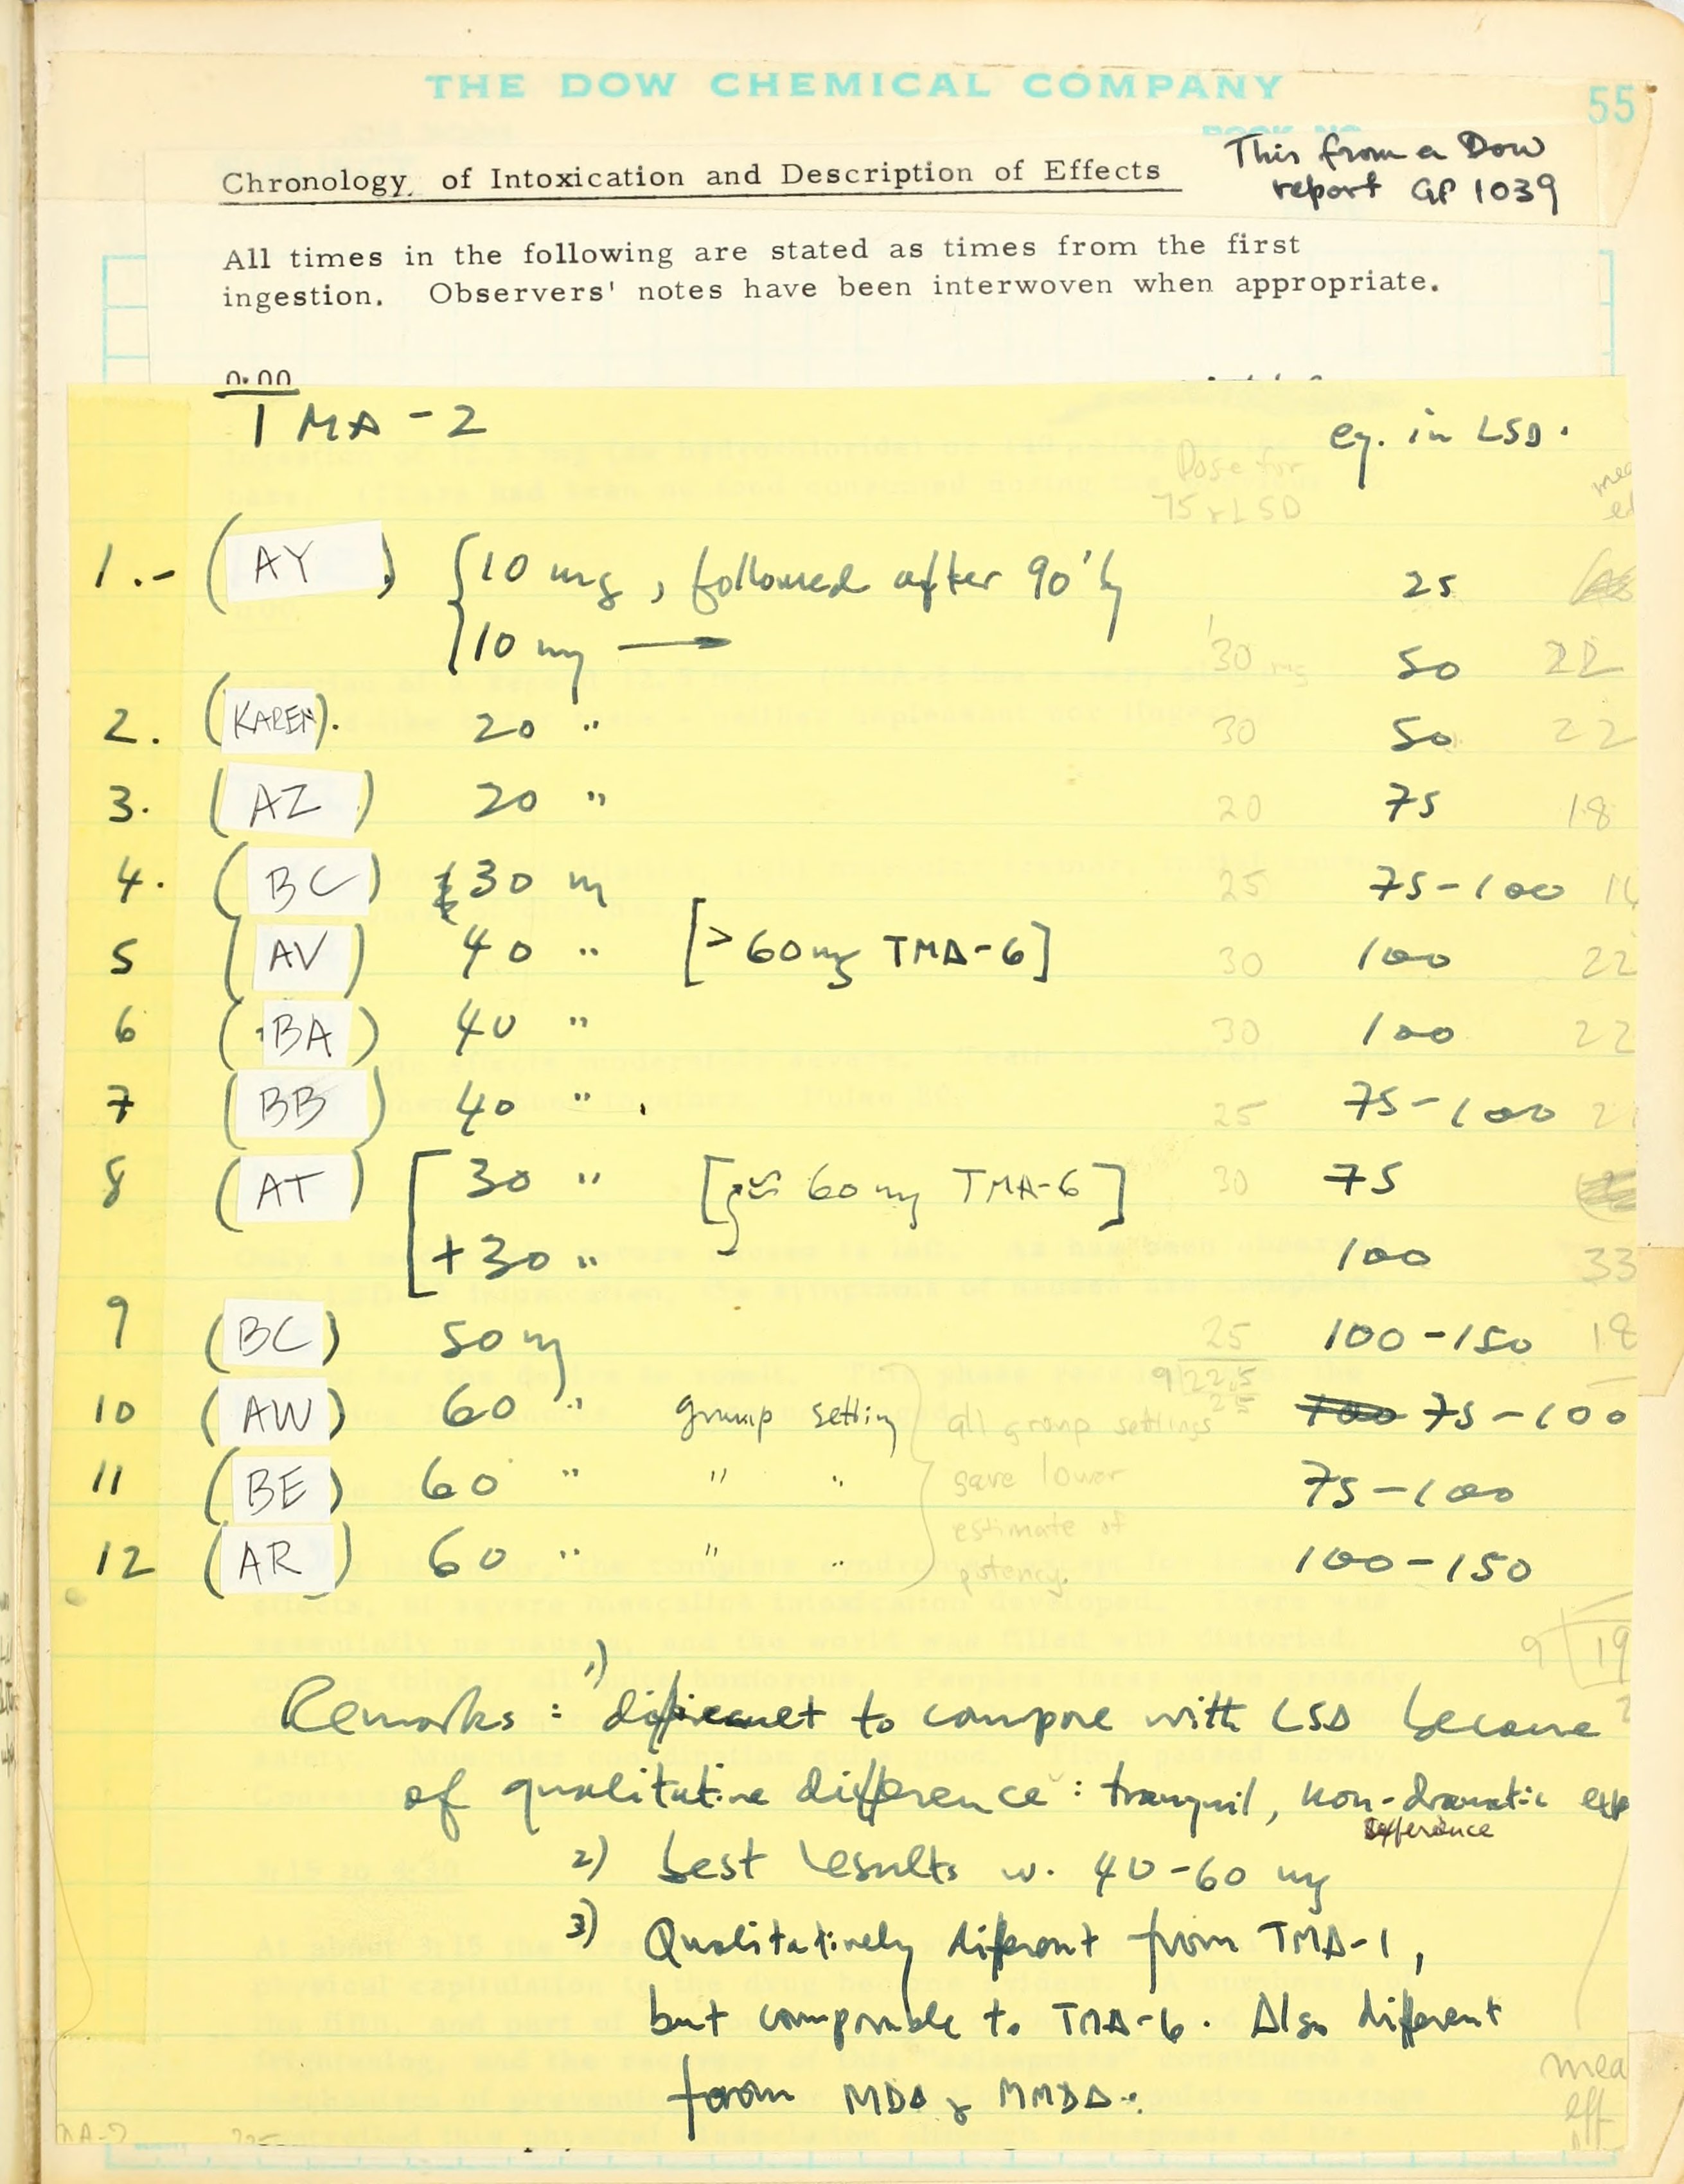 THE DOW CHEMICAL COMPANY
55
BOOK NO.
This from a Dow
report GP 1039
Chronology of Intoxication and Description of Effects
All times in the following are stated as times from the first
ingestion. Observers' notes have been interwoven when appropriate.
0:00
TMA-2 eq. in LSD.
Dose for
75 γ LSD
1.- (AY) { 10 mg, followed after 90' by 25
10 mg → 30 mg 50 22
2. (KAREN). 20 " 30 50 22
3. (AZ) 20 " 20 75 18
4. (BC) 30 m 25 75-100
5 (AV) 40 " [>60 mg TMA-6] 30 100 22
6 (BA) 40 " 30 100 22
7 (BB) 40 " 25 75-100
8 (AT) [ 30 " [≈ 60 mg TMA-6] 30 75
+30 " 100 33
9 (BC) 50 m 25 100-150 18
9 225
25
10 (AW) 60 " group setting all group settings 100 75-100
11 (BE) 60 " " " gave lower 75-100
estimate of
12 (AR) 60 " " " potency. 100-150
9 19
Remarks: 1) difficult to compare with LSD because
of qualitative difference: tranquil, non-dramatic exp
experience
2) best results w. 40-60 mg
3) Qualitatively different from TMA-1,
but comparable to TMA-6. Also different
from MDA y MMDA.
mea
eff